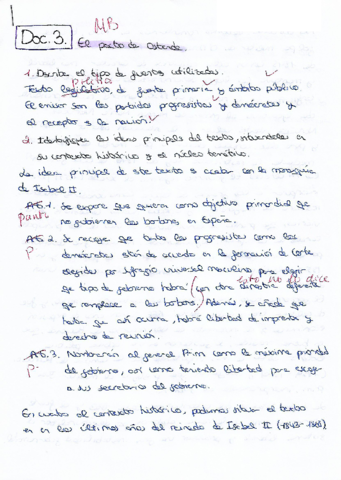 MB
Doc. 3. El pacto de Ostende
1. Describe el tipo de fuentes utilizadas.
político
Texto legislativo, de fuente primaria y ámbito público.
El emisor son los partidos progresistas y demócratas y
el receptor s la nación.
2. Identifique las ideas principales del texto, intuyendolas en
su contexto histórico y el núcleo temático.
La idea principal de este texto s acabar con la monarquía
de Isabel II.
Art. 1. Se expone que quieren como objetivo primordial que
punto
no gobiernen los borbones en España.
Art. 2. Se recoge que tanto los progresistas como los
P
demócratas están de acuerdo en la formación de Cortes
elegidas por sufragio universal masculino para elegir
esto no lo dice
que tipo de gobierno habrá (un otra dinastía diferente
que remplace a los borbones). Además, se añade que
hasta que así ocurra, habrá libertad de imprenta y
derecho de reunión.
Art. 3. Nombrarán al general Prim como la máxima prioridad
P.
del gobierno, así como teniendo libertad para escoger
a sus secretarios del gobierno.
En cuanto al contexto histórico, podemos situar el texto
en los últimos años del reinado de Isabel II (1843-1868)